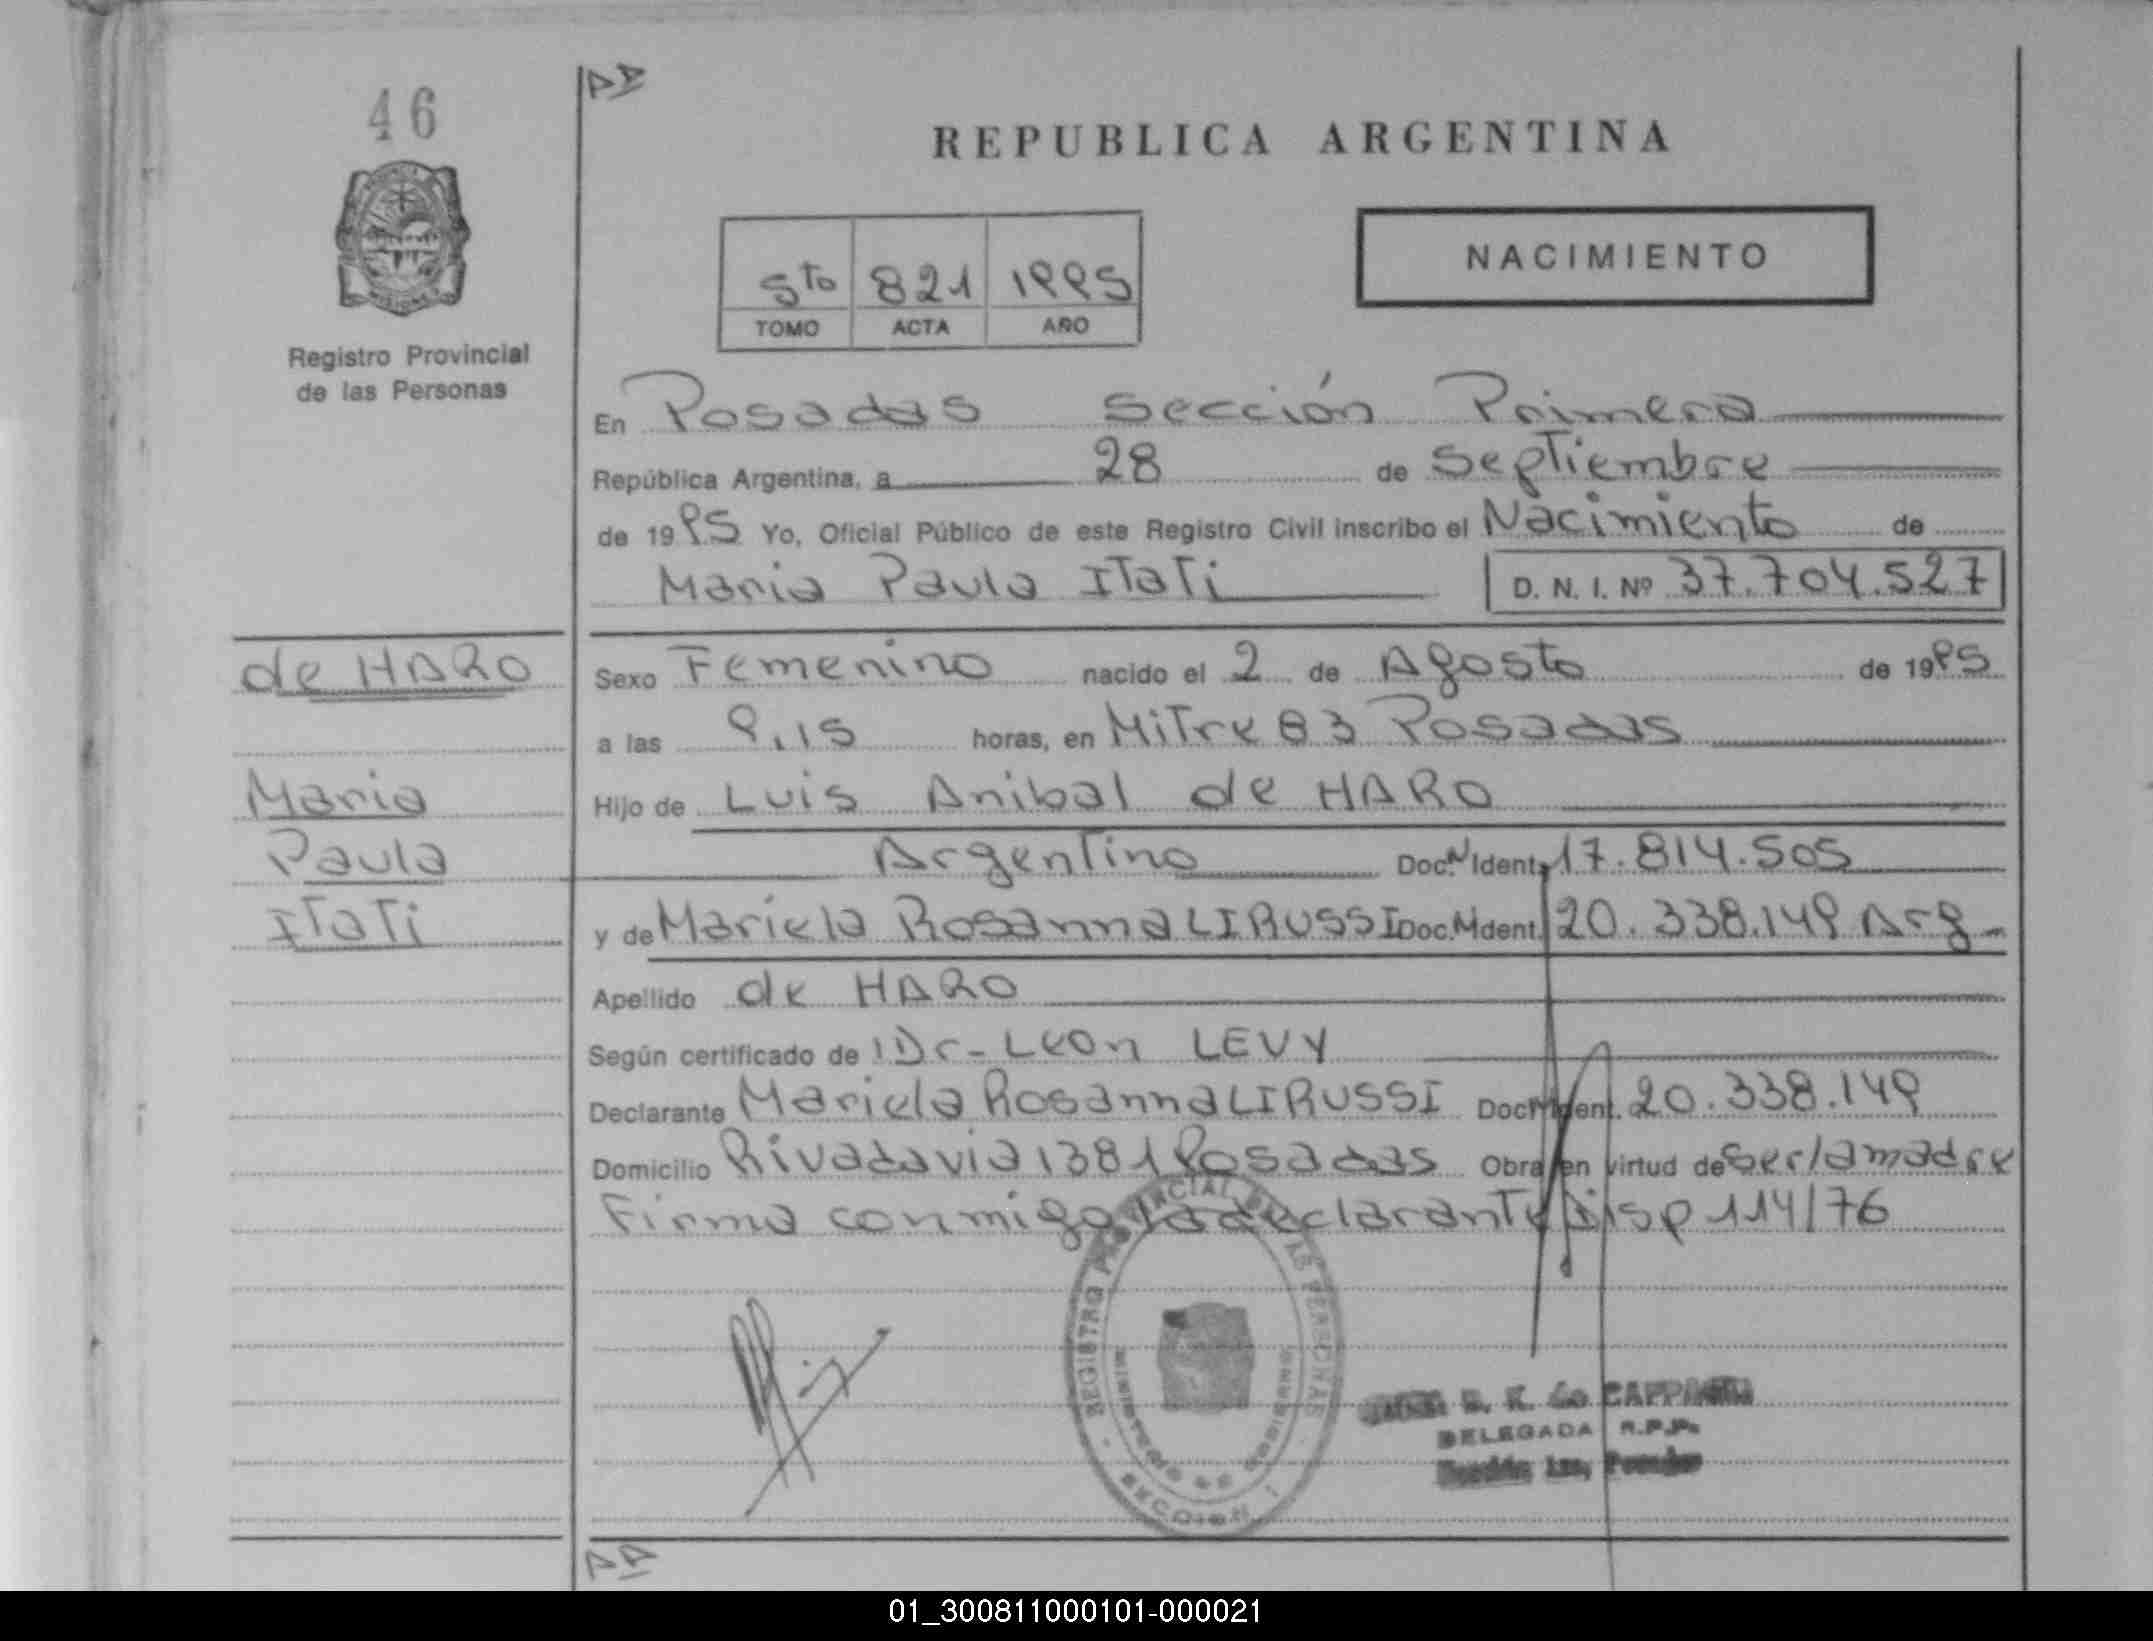 46
REPUBLICA ARGENTINA
NACIMIENTO
5to 821 1995
TOMO ACTA AÑO
Registro Provincial
de las Personas
En Posadas Sección Primera
República Argentina, a 28 de Septiembre
de 1995 Yo, Oficial Público de este Registro Civil inscribo el Nacimiento de
Maria Paula ITaTi D. N. I. Nº 37.704.527
de HARO
Sexo Femenino nacido el 2 de Agosto de 1995
a las 9,15 horas, en MiTre 83 Posadas
Maria
Hijo de Luis Anibal de HARO
Paula
Argentino Doc. N Ident. 17.814.505
ITaTi
y de Mariela Rosanna LIRUSSI Doc. N Ident. 20.338.149 Arg-
Apellido de HARO
Según certificado de Dr- Leon LEVY
Declarante Mariela Rosanna LIRUSSI Doc N Ident. 20.338.149
Domicilio Rivadavia 1381 Posadas Obra en virtud de ser la madre
Firma conmigo la declarante Disp 114/76
REGISTRO PROVINCIAL DE LAS PERSONAS
MINISTERIO DE GOBIERNO
SECCION 1
DELEGADA R.P.P.
Sección 1ra, Posadas
01_300811000101-000021